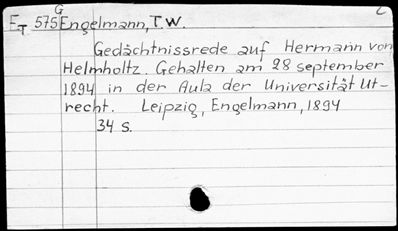 G
ET 575 Engelmann, T.W.
Gedächtnissrede auf Hermann von
Helmholtz. Gehalten am 28 september
1894 in der Aula der Universität Ut-
recht. Leipzig, Engelmann, 1894
34 S.